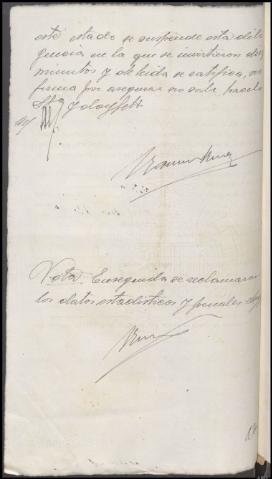 este estado se suspende esta dili
gencia en la que se invirtieron dos
minutos y de leida se ratifica, no
firma por asegurar no saberlo hacer
y doy fe
Nota. Enseguida se reclamaron
los datos estadisticos y penales doy